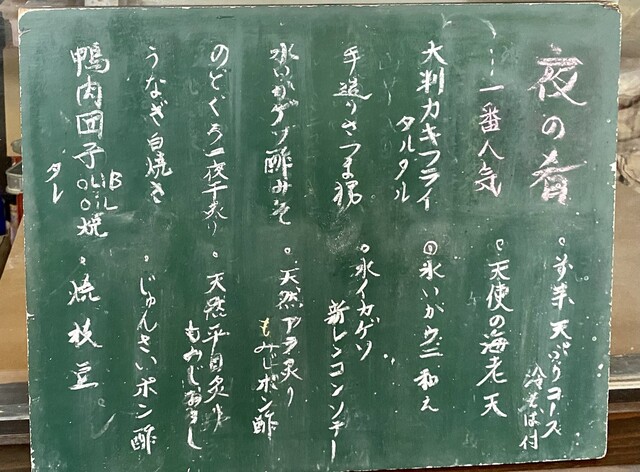 夜の肴
一番人気
大判カキフライ
タルタル
手造りさつま揚
水いかゲソ酢みそ
のどぐろ一夜干炙り
うなぎ白焼き
鴨肉団子
OLiB
OiL
焼
タレ
天ぷらコース
冷そば付
天使の海老天
水いかウニ和え
水イカゲソ
新レンコンソテー
天然アラ炙り
もみじポン酢
天然平目炙り
もみじおろし
じゅんさいポン酢
焼枝豆